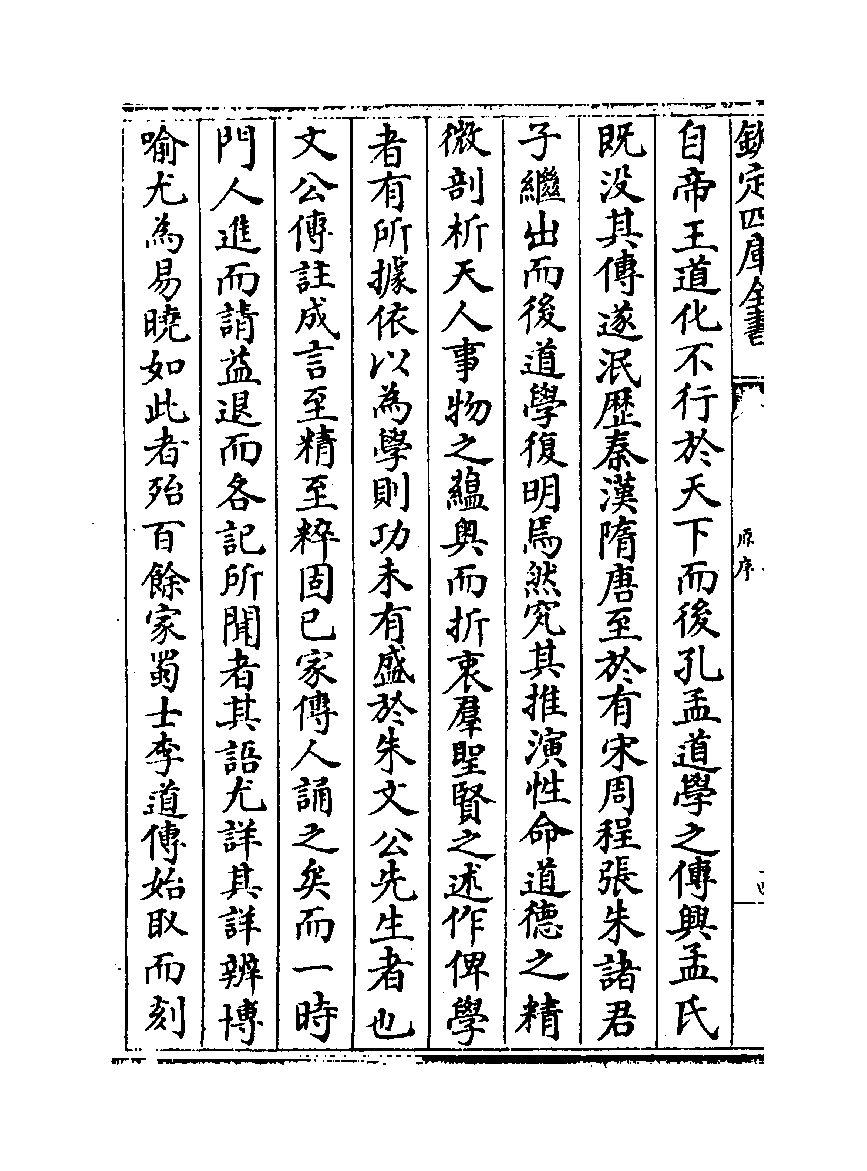 欽定四庫全書
原序
自帝王道化不行於天下而後孔孟道學之傳興孟氏
既没其傳遂泯歴秦漢隋唐至於有宋周程張朱諸君
子繼出而後道學復明焉然究其推演性命道德之精
微剖析天人事物之藴奥而折衷羣聖賢之述作俾學
者有所據依以為學則功未有盛於朱文公先生者也
文公傳註成言至精至粹固已家傳人誦之矣而一時
門人進而請益退而各記所聞者其語尤詳其詳辨博
喻尤為易曉如此者殆百餘家蜀士李道傳始取而刻